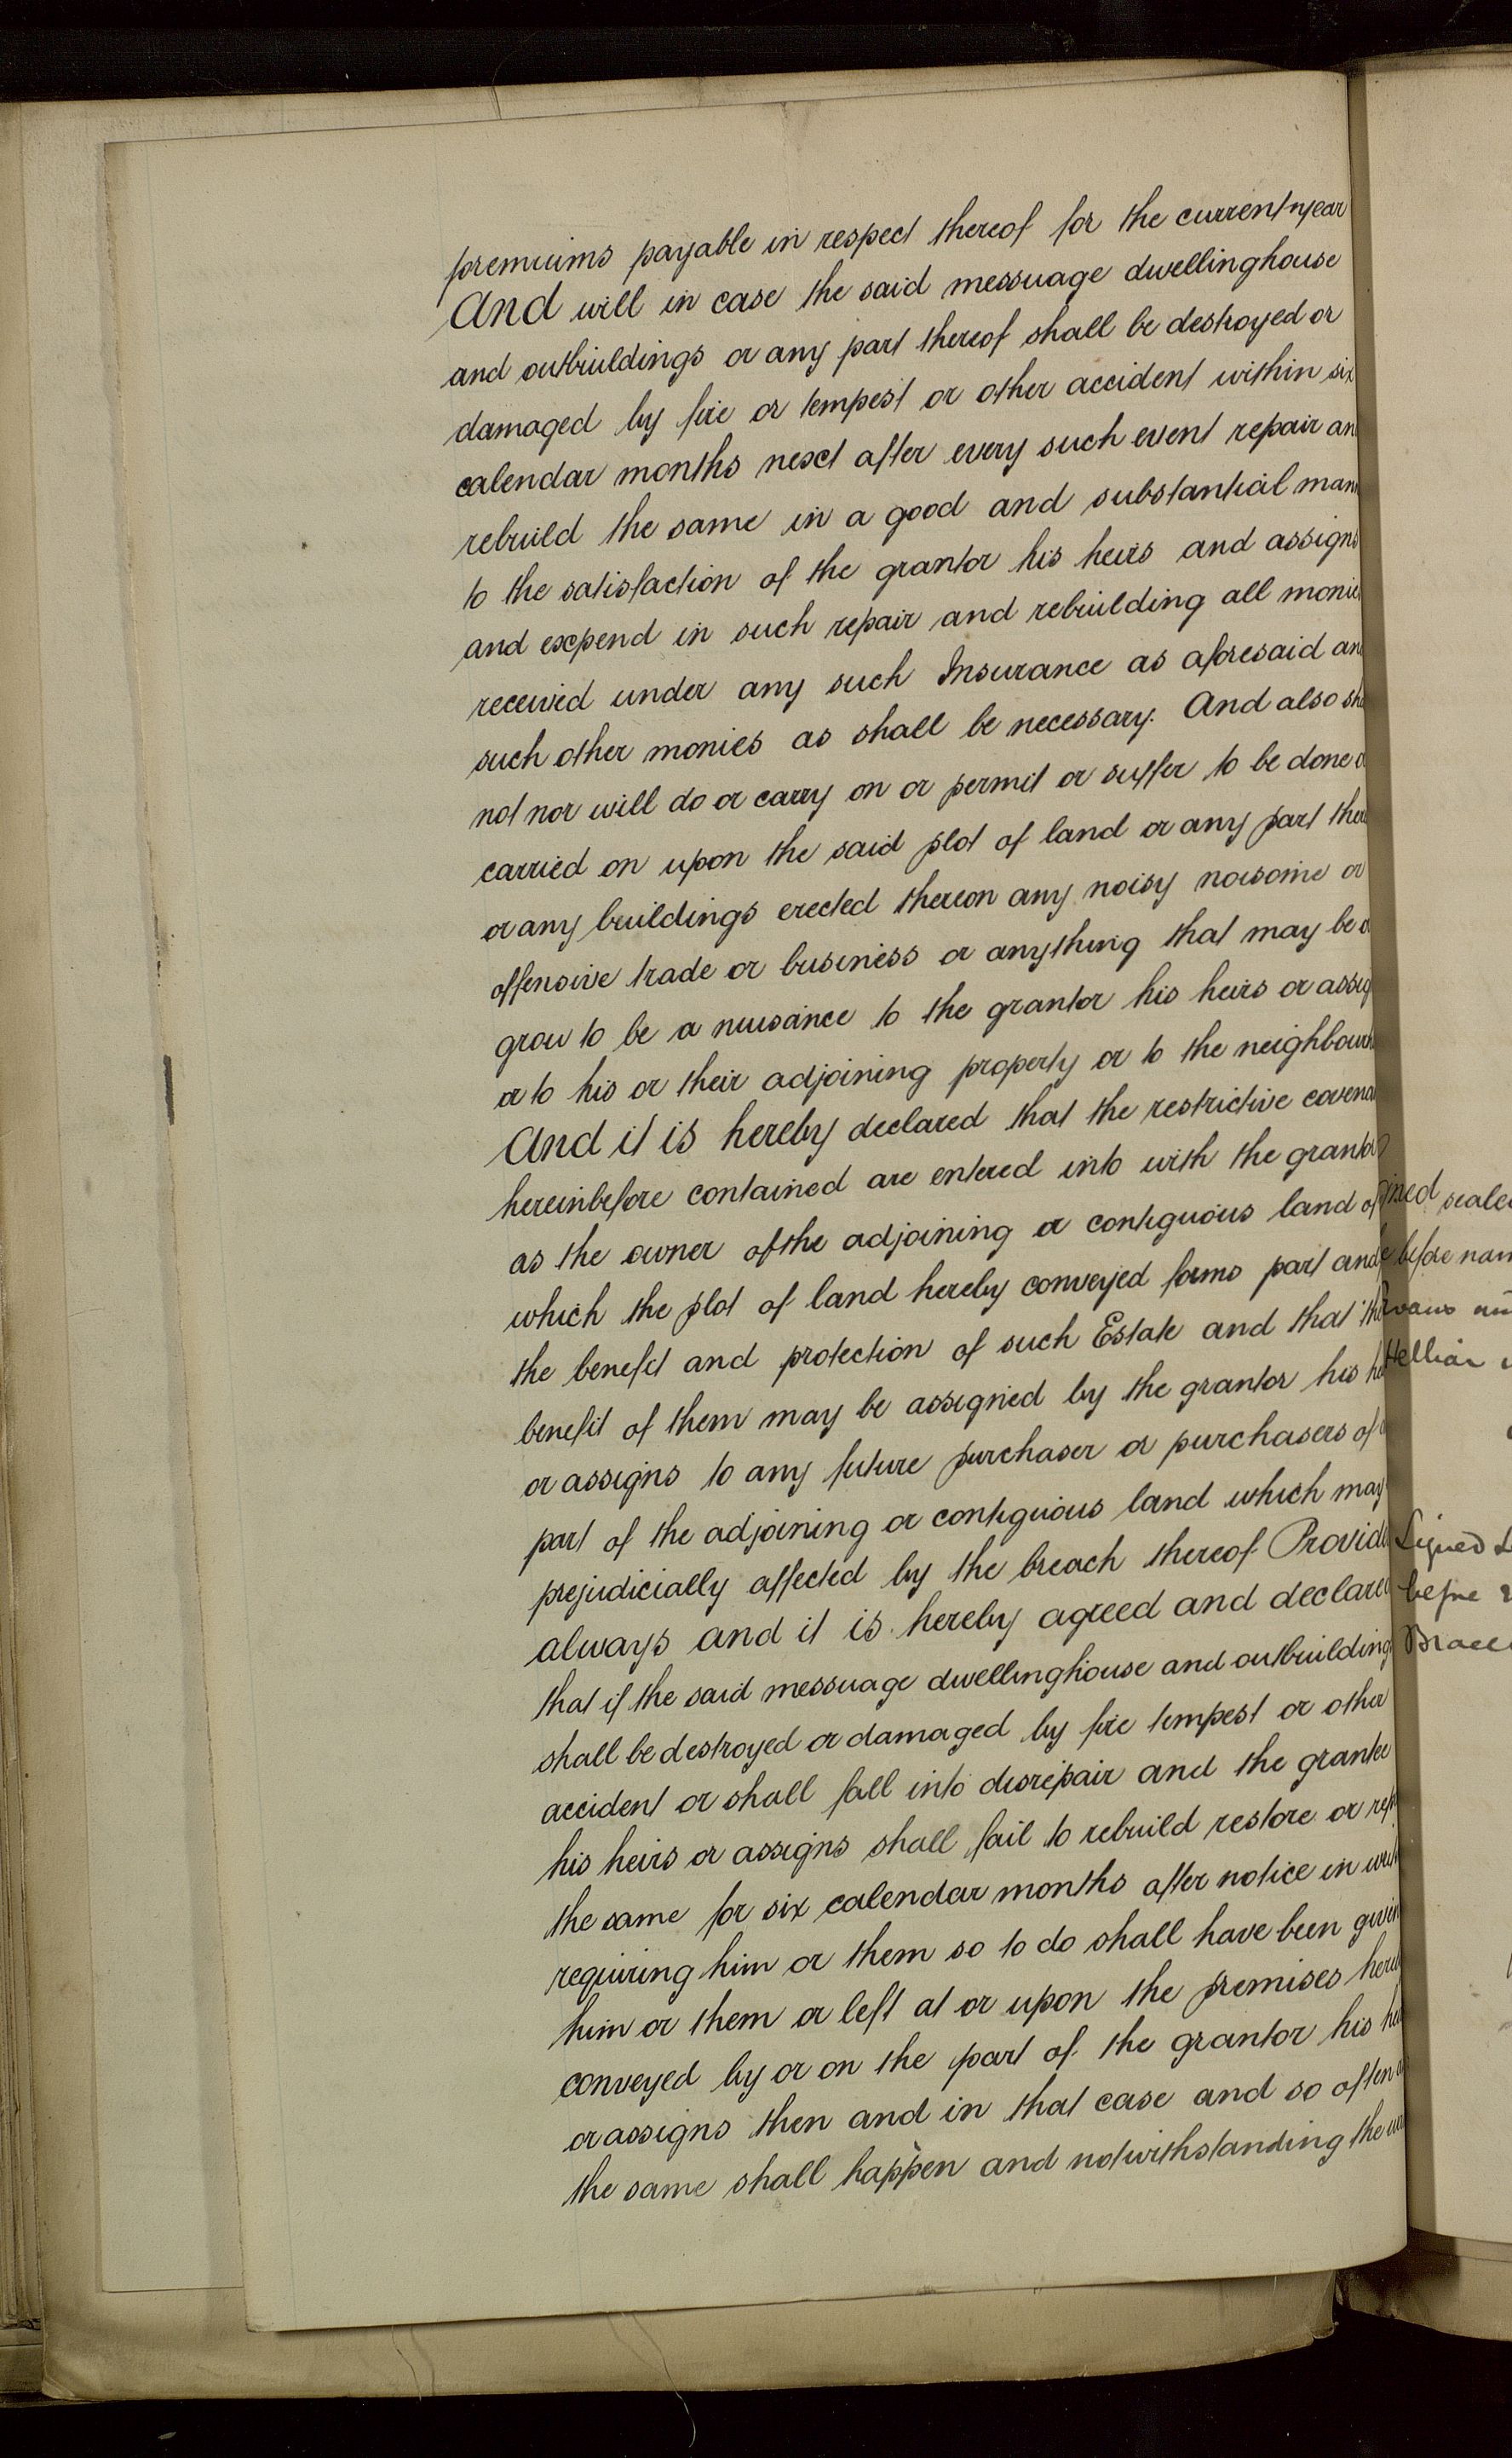 premiums payable in respect thereof for the current year
And will in case the said messuage dwellinghouse
and outbuildings or any part thereof shall be destroyed or
damaged by fire or tempest or other accident within six
calendar months next after every such event repair an
rebuild the same in a good and substantial mann
to the satisfaction of the grantor his heirs and assigns
and expend in such repair and rebuilding all monies
received under any such Insurance as aforesaid an
such other monies as shall be necessary. And also sha
not nor will do or carry on or permit or suffer to be done o
carried on upon the said plot of land or any part there
or any buildings erected thereon any noisy noisome or
offensive trade or business or anything that may be o
grow to be a nuisance to the grantor his heirs or assig
or to his or their adjoining property or to the neighbourh
And it is hereby declared that the restrictive covena
hereinbefore contained are entered into with the grantor
as the owner of the adjoining or contiguous land of
which the plot of land hereby conveyed forms part and
the benefit and protection of such Estate and that the
benefit of them may be assigned by the grantor his he
or assigns to any future purchaser or purchasers of
part of the adjoining or contiguous land which may
prejudicially affected by the breach thereof Provide
always and it is hereby agreed and declared
that if the said messuage dwellinghouse and outbuildings
shall be destroyed or damaged by fire tempest or other
accident or shall fall into disrepair and the grantee
his heirs or assigns shall fail to rebuild restore or rep
the same for six calendar months after notice in writ
requiring him or them so to do shall have been given
him or them or left at or upon the premises hereb
conveyed by or on the part of the grantor his hei
or assigns then and in that case and so often a
the same shall happen and notwithstanding the wa
gned seale
before nam
Helliar
Signed
before